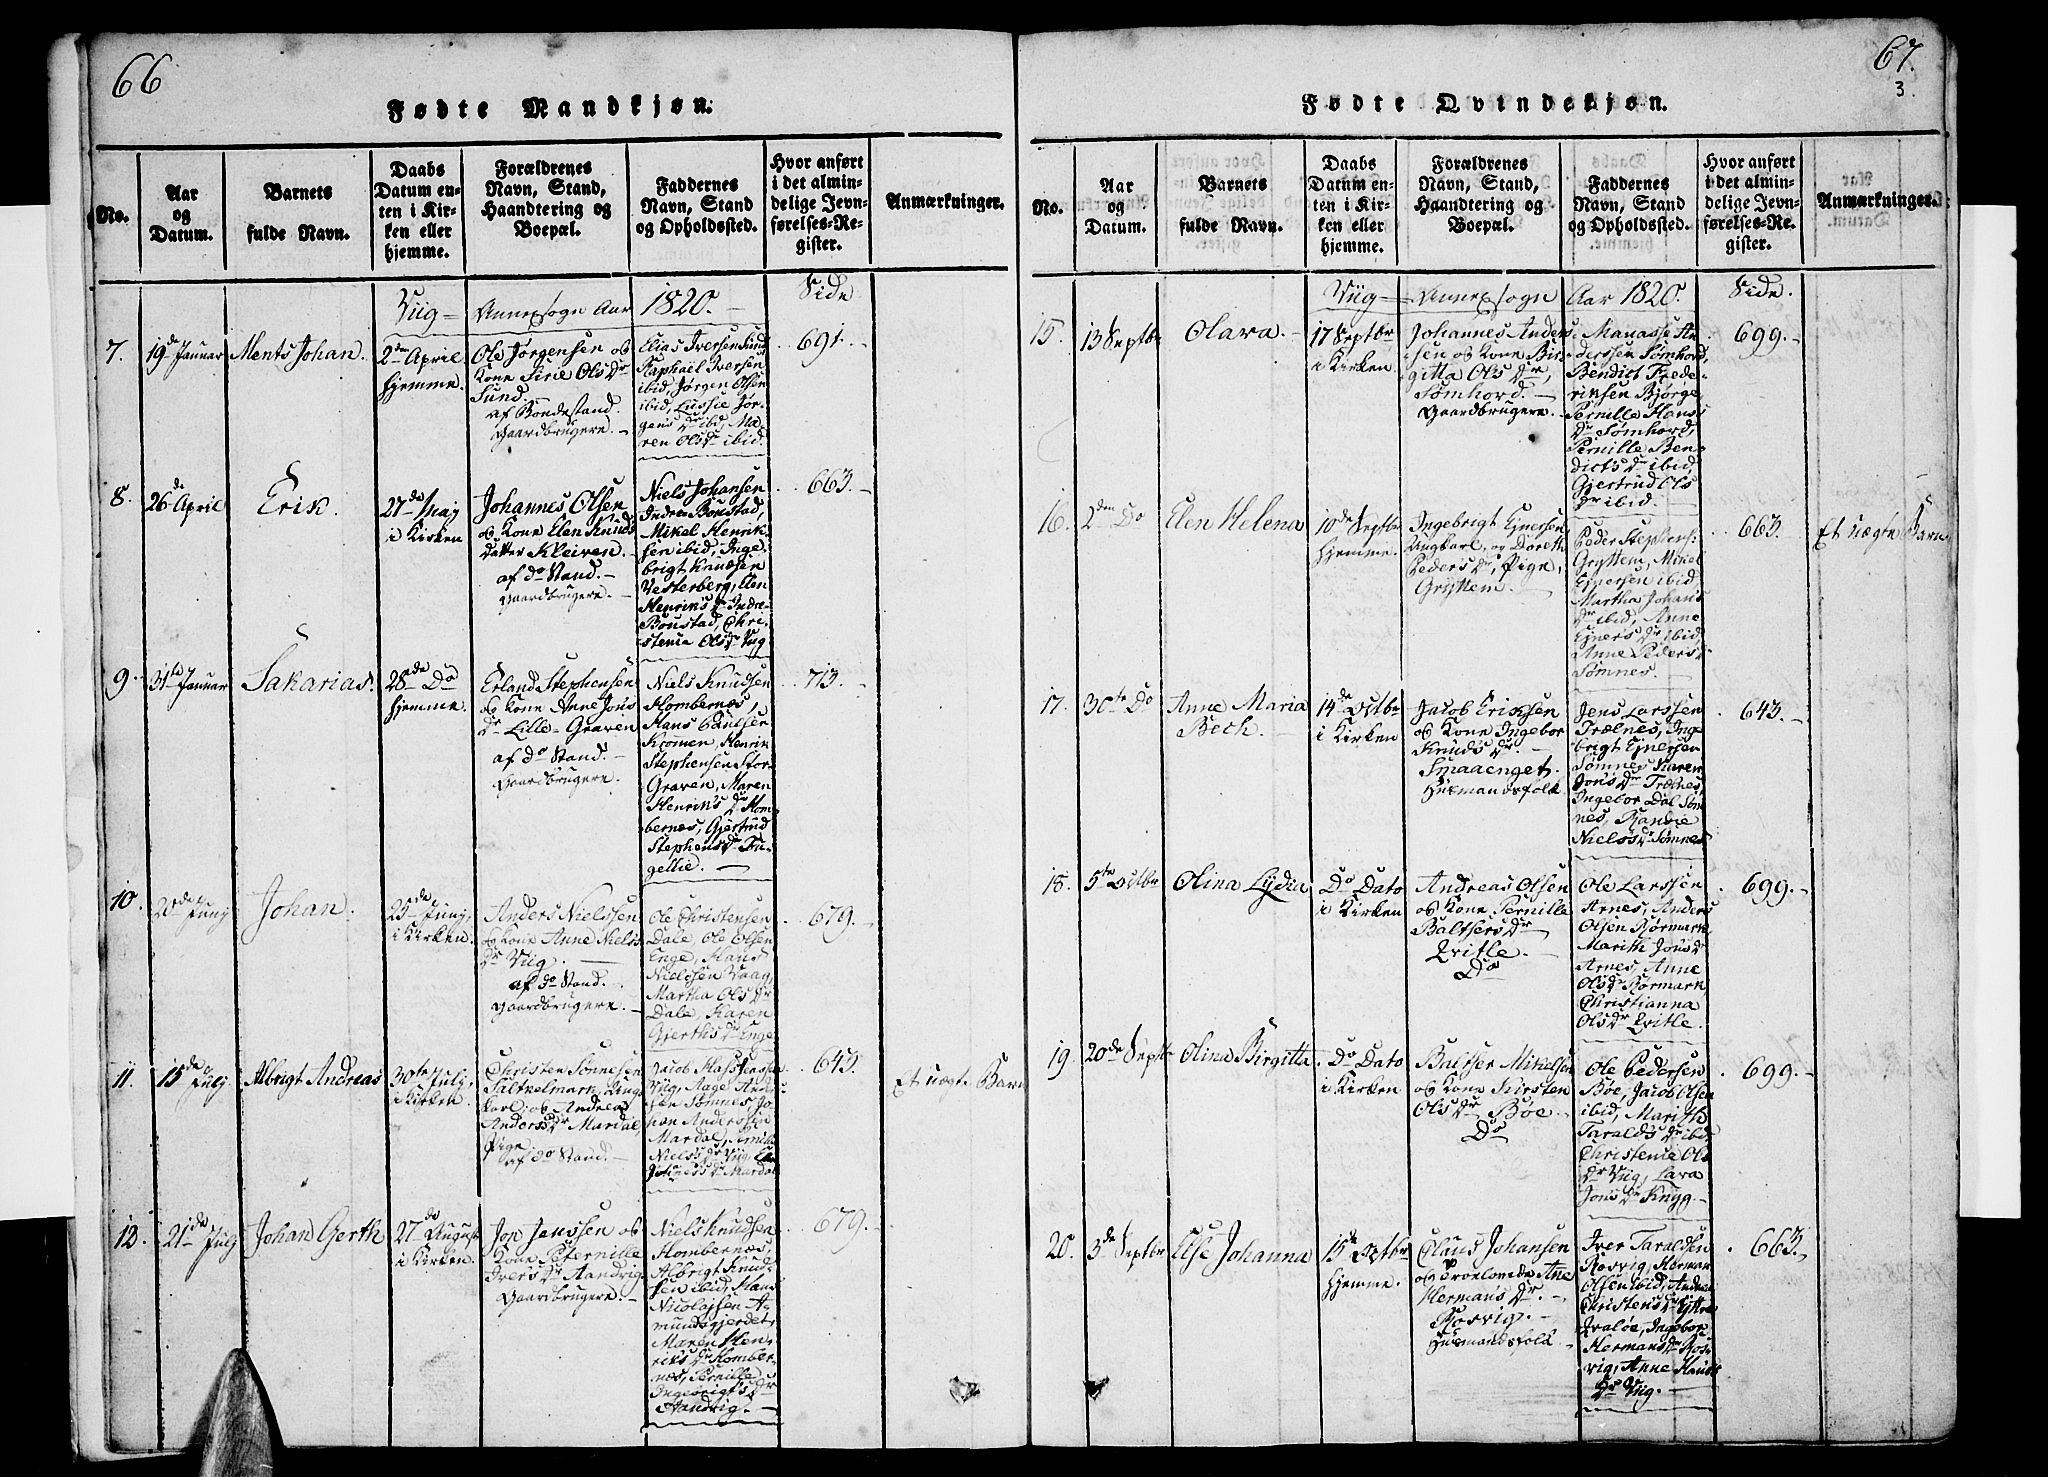 66
Fødte Mandkjøn.
No.
Aar
og
Datum.
Barnets
fulde Navn.
Daabs
Datum en-
ten i Kir-
ken eller
hjemme.
Forældrenes
Navn, Stand,
Haandtering og
Boepæl.
Faddernes
Navn, Stand
og Opholdssted.
Hvor anført
i det almin-
delige Jevn-
førelses-Re-
gister.
Anmærkninger.
Viig = Annexsogn Aar 1820. —
Side
7.
19de Januar
Ments Johan.
2den April
hjemme.
Ole Jørgensen og
Kone Sirie Ols Dr
Sund.
af Bondestand.
Gaardbrugere. —
Elias Iversen Sund
Raphael Iversen
ibid, Jørgen Olsen
ibid, Lussie Jør-
gens Dr ibid, Ma-
ren Ols Dr ibid.
691. —
8.
26de April
Erik.
27de May
i Kirken
Johannes Olsen
og Kone Elen Knuds
datter Kleiven. —
af do Stand. —
Gaardbrugere. —
Niels Johansen
Indre Boustad,
Mikel Henrik-
sen ibid, Inge
brigt Knudsen
Vesterberg, Elen
Henriks Dr Indre-
Boustad, Chri-
stenia Ols Dr Viig
663. —
9.
31te Januar
Sakarias.
28de Do
hjemme.
Erland Stephensen
og Kone Anne Jons
Dr Lille-Graven
af do Stand. —
Gaardbrugere.
Niels Knudsen
Hombernes,
Hans Paulsen
Kromen, Henrik
Stephensen Stor-
Graven, Maren
Henriks Dr Hom-
bernes, Gjertrud
Stephens Dr Fu-
gellie. —
713. —
10.
2den Junj
Johan.
25de Junj,
i Kirken.
Anders Nielssen
og Kone Anne Niels
Dr Viig. —
af do Stand. —
Gaardbrugere. —
Ole Christensen
Dale, Ole Olsen
Enge, Hans
Nielssen Vaag,
Martha Ols Dr
Dale, Karen
Gjerths Dr Enge
679. —
11.
15de Julj
Albrigt Andreas
30te Julj,
i Kirken.
Christen Sønnesen
Saltvelmark, Ung
karl, og Andrea
Anders Dr Mardal,
Pige
af do Stand. —
Viig, Aage
Sømnes, Jo-
han Anderssen
Mardal,
Niels Dr Viig,
Mardal
643.
Et uægte Barn
12.
21de Julj
Johan Gerth
27de August
i Kirken.
Jon Janssen og
Kone Peternille
Ivers Dr Aandrig
Gaardbrugere. —
Niels Knudsen
Hombernes,
Albrigt Knud-
sen ibid, Hans
Nicolajsen A-
mundsgjerdet,
Maren Hen-
riks Dr Homber-
nes, Pernille
Ingebrigts Dr
Aandrig. —
679. —
67.
3.
Fødte Qvindekjøn.
No.
Aar
og
Datum.
Barnets
fulde Navn.
Daabs
Datum en-
ten i Kir-
ken eller
hjemme.
Forældrenes
Navn, Stand,
Haandtering og
Boepæl.
Faddernes
Navn, Stand
og Opholdssted.
Hvor anført
i det almin-
delige Jevn-
førelses-Re-
gister.
Anmærkninger.
Viig = Annexsogn Aar 1820.
Side.
15.
13 Septbr
Olava. —
17 Septbr
i Kirken
Johannes Anders
sen og Kone Bir-
gitta Ols Dr,
Sømhord. —
Gaardbrugere. —
Manasse An-
derssen Sømhord,
Bendict Frede-
riksen Bjørge
Pernille Hans
Dr Sømhord,
Pernille Ben-
dicts Dr ibid,
Gjertrud Ols
Dr ibid.
699. —
16.
2den Do
Elen Helena
10de Septbr
hjemme.
Ingebrigt Ejnersen
Ungkarl, og Doreth
Peders Dr, Pige,
Gryttem. —
Peder Stephens:
Gryttem, Mikel
Ejnersen ibid,
Martha Johans
Dr ibid, Anne
Ejners Dr ibid,
Anne Peders
Sømnes.
663.
Et uægte Barn
17.
30te Do
Anne Maria
Bech. —
14de Octbr
i Kirken
Jacob Eriksen
og Kone Ingebor
Knuds Dr. —
Smaaenget.
Huusmandsfolk
Jens Larssen
Trælnes, Inge-
brigt Ejnersen
Sømnes, Karen
Jons Dr Trælnes,
Ingebor Dal Søm
nes, Randie
Niels Dr Sømnes
643. —
18.
5te Octbr
Olina Lydia
Do Dato
i Kirken
Andreas Olsen
og Kone Pernille
Baltsers Dr
Qvitle. —
Do
Ole Larssen
Arnes, Anders
Olsen Rørmark,
Marith Jons Dr
Arnes, Anne
Ols Dr Rørmark
Christianna
Ols Dr Qvitle.
699. —
19.
20de Septbr
Olina Birgitta
Do Dato
i Kirken
Baltser Mikelsen
og Kone Kirsten
Ols Dr Bøe —
Do
Ole Pedersen
Bøe, Jacob Olsen
ibid, Marith
Taralds Dr ibid
Christenie Ols
Dr Viig, Lava
Jons Dr Knyg. —
699. —
20.
3de Septbr
Else Johanna
15de Octbr
hjemme.
Claus Johansen
og Trolovede Ane
Hermans Dr. —
Rosvig. —
Huusmandsfolk —
Iver Taraldsen
Rosvig, Herman
Olsen ibid, Andrea
Christens Dr Yttre
Qvaløe, Ingebor
Hermans Dr Ros-
vig, Anne Hans
Dr Viig. —
663. —